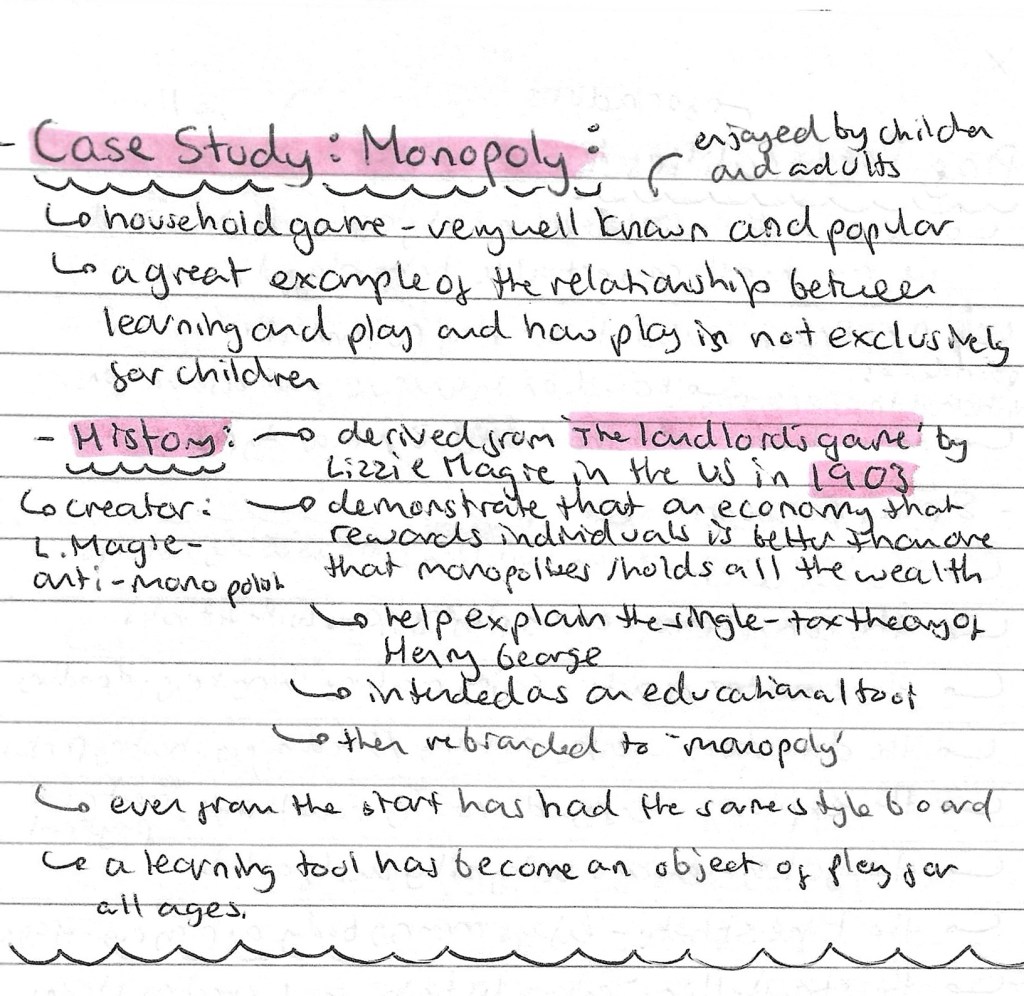 enjoyed by children
and adults
- Case Study: Monopoly:
↳ household game - very well known and popular
↳ a great example of the relationship between
learning and play and how play is not exclusively
for children
- History: → derived from 'The landlord's game' by
Lizzie Magie in the US in 1903
↳ creator: → demonstrate that an economy that
L. Magie - rewards individuals is better than one
anti-monopolist that monopolises /holds all the wealth
↳ help explain the single-tax theory of
Henry George
↳ intended as an educational tool
↳ then rebranded to 'monopoly'
↳ even from the start has had the same style board
↳ a learning tool has become an object of play for
all ages.